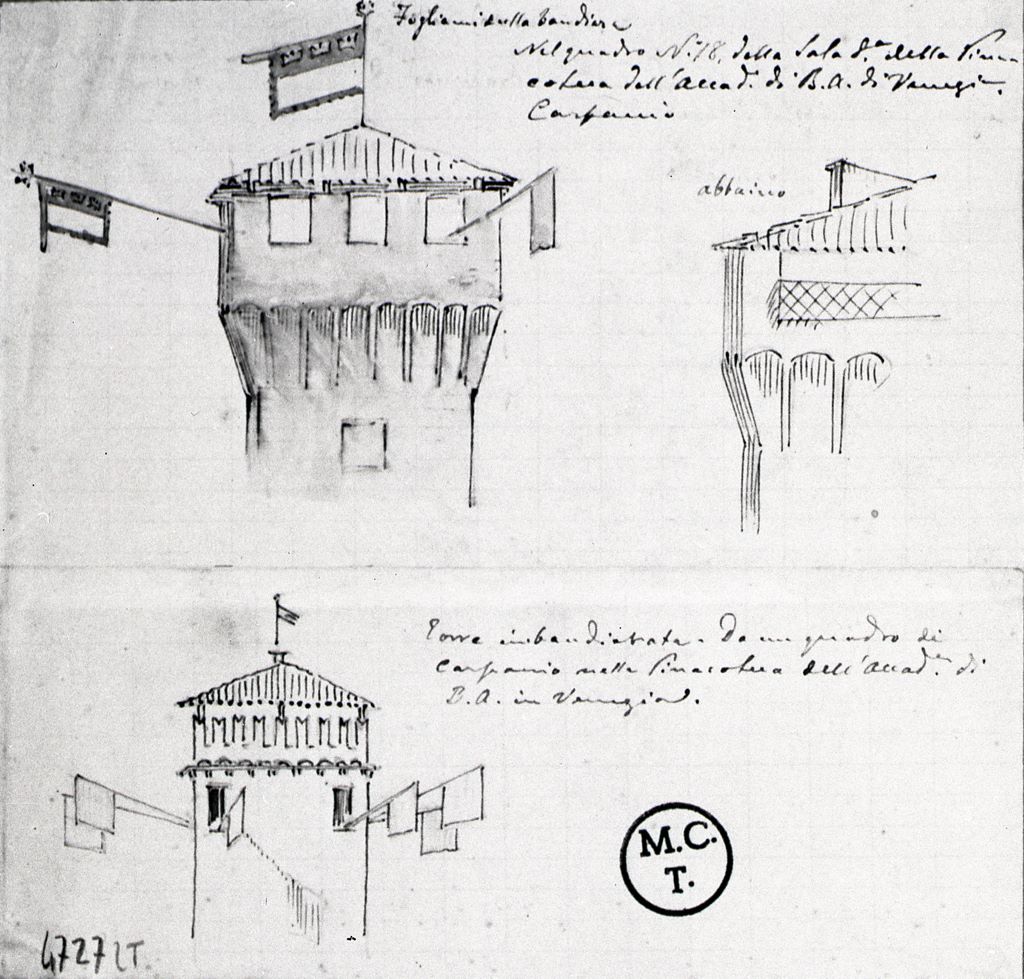 Fogliami sulla bandiera
Nel quadro N. 18, della Sala d.ª della Pina
coteca dell'Accad. di B.A. di Venezia.
Carpaccio
abbaino
Torre imbandierata. Da un quadro di
Carpaccio nella Pinacoteca dell'Accad.ª di
B.A. in Venezia.
M.C.
T.
4727 LT.